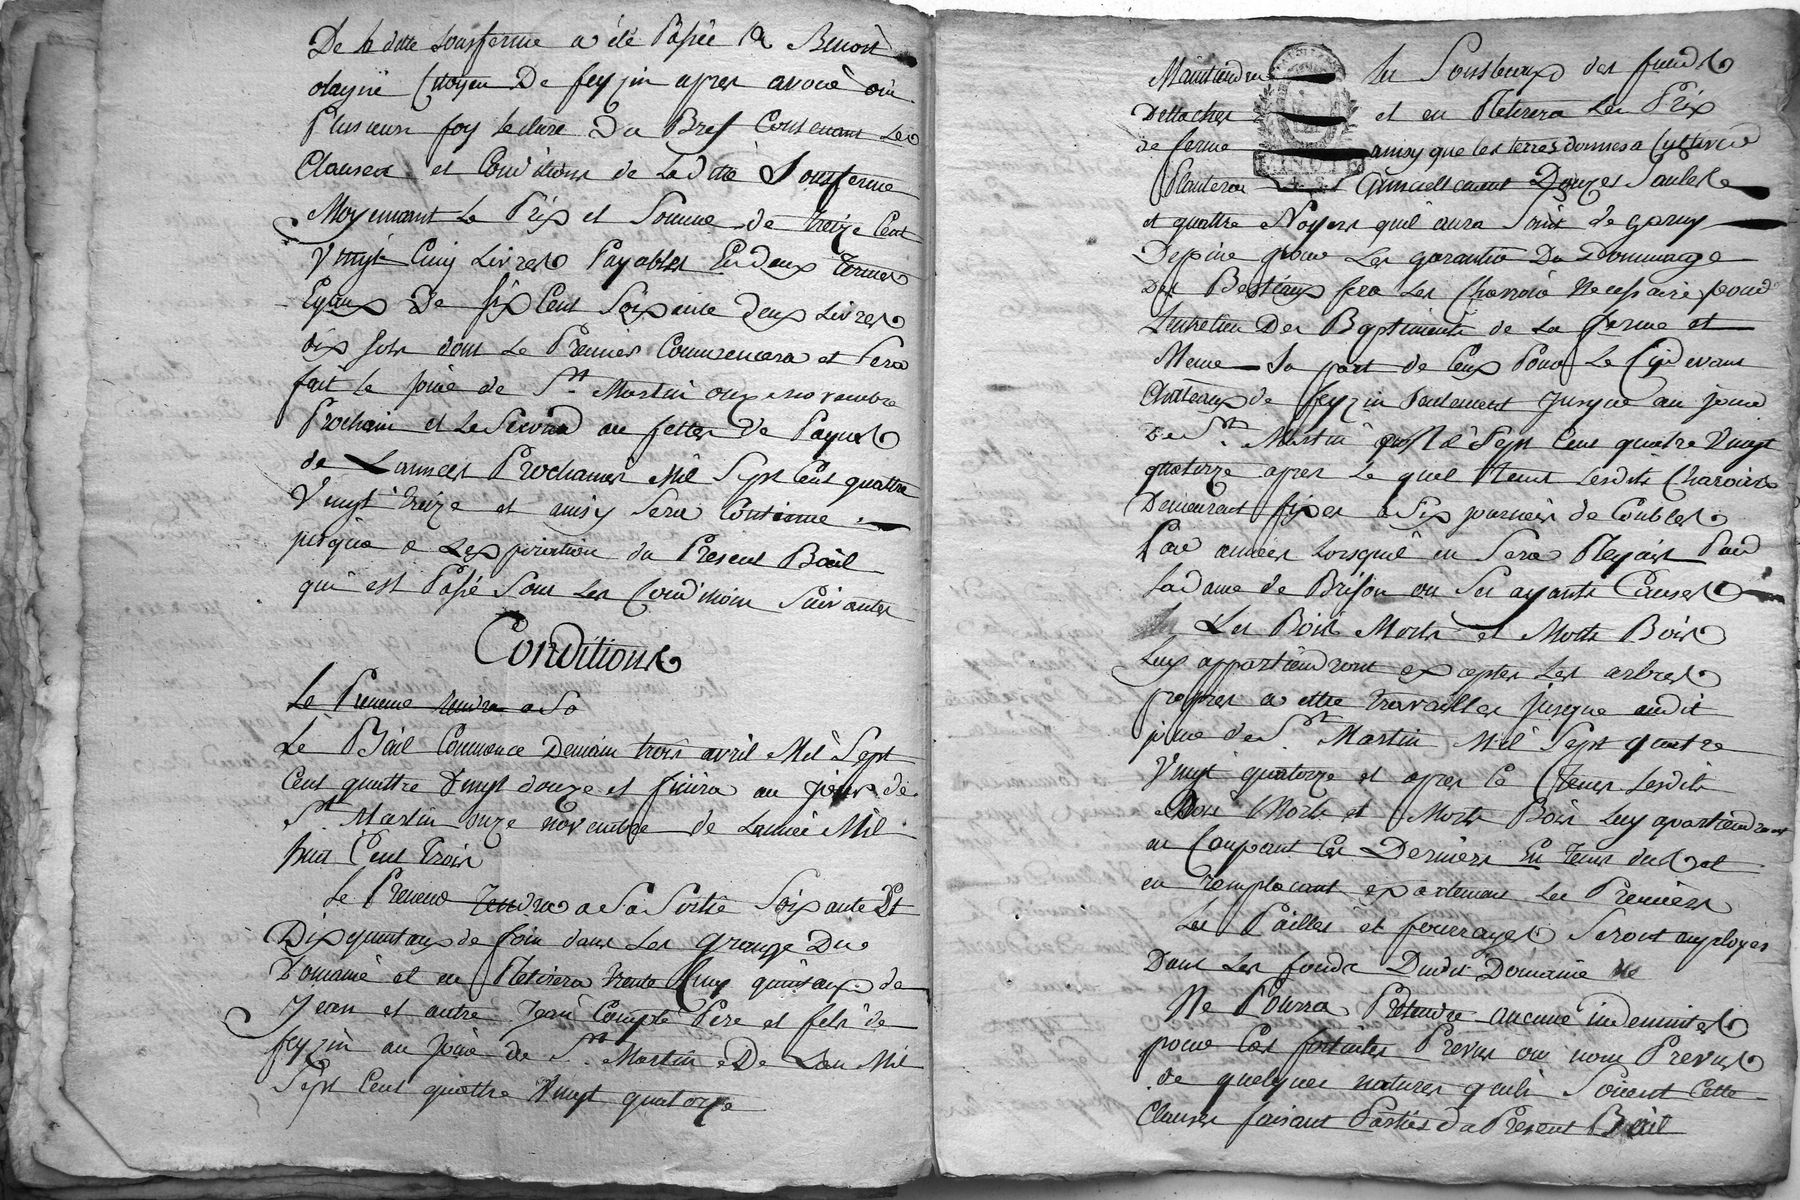 De la ditte Sousferme a été Passée a Benoit
Citoyen De feyzin apres avoir oui
Plusieurs foy lecture Du Bref Contenant Les
Clauses et Conditions de Laditte Sousferme
Moyennant Le Prix et Somme de treize Cent
Vingt Cinq Livres Payables En deux termes
Egaux De Six Cent Soixante deux Livres
dix sols dont Le Premier Commencera et Sera
fait le jour de St Martin onze novembre
Prochain et Le Second au fettes de Paques
de Lannees Prochaines Mil Sept Cent quattre
Vingt treize et ainsy Sera Continue
jusqua a Lexpiration du Present Bail
qui est Passé Sous Les Conditions Suivantes
Conditions
Le Preneur rendra a Sa
Le Bail Commence Demain trois avril Mil Sept
Cent quattre Vingt douze et finira au jour de
St Martin onze novembre de Lannée Mil
huit Cent Trois
Le Preneur rendra a Sa Sortie Soixante Et
Dix quintaux de foin dans Les grange Du
Domaine et en Retirera trente Cinq quintaux de
Jean et autre Jean Compte Pere et fils de
feyzin au jour de St Martin De Lan Mil
Sept Cent quattre Vingt quatorze
Maintiendra les Sousbeaux des fonds
Dettachés et en Retirera Les Prix
de ferme ainsy que les terres donnes a Cultivé
Plantera et annuellement Douzes Saules
et quattre Noyers quil aura Soin de garny
Depine pour Les garantir Du Dommage
Des Bestiaux fera Les Charrois Necessaire pour
Lentretien Des Baptiments de La ferme et
Meme Sa part de Ceux Pour Le Cydevant
Chateaux de feyzin Seulement Jusque au jour
De St Martin Sept Cent quatre Vingt
quatorze apres Le quel Tems Lesdits Charois
Demeurant fixés a Six journées de Coubles
Par années Lorsquil en Sera Requis Par
Ladame de Brison ou Ses ayants Causes
Les Bois Morts et Morts Bois
Luy appartiendront exceptes Les arbres
propres a ettre travailles Jusque audit
jour de St Martin Mil Sept quatre
Vingt quatorze et apres Ce Tems Lesdits
Bois Morts et Morts Bois Luy apartiendront
en Coupant Ces Derniers En Tems
en remplacant exactement Les Premiers
Les Pailles et fourrages Seront employes
Dans Les fonds Dudit Domaine
Ne Pourra Pretendre aucune indemnites
pour Cas fortuites Prevus ou non Prevus
de quelques natures quils Soient Cette
Clauses faisant Parties du Present Bail